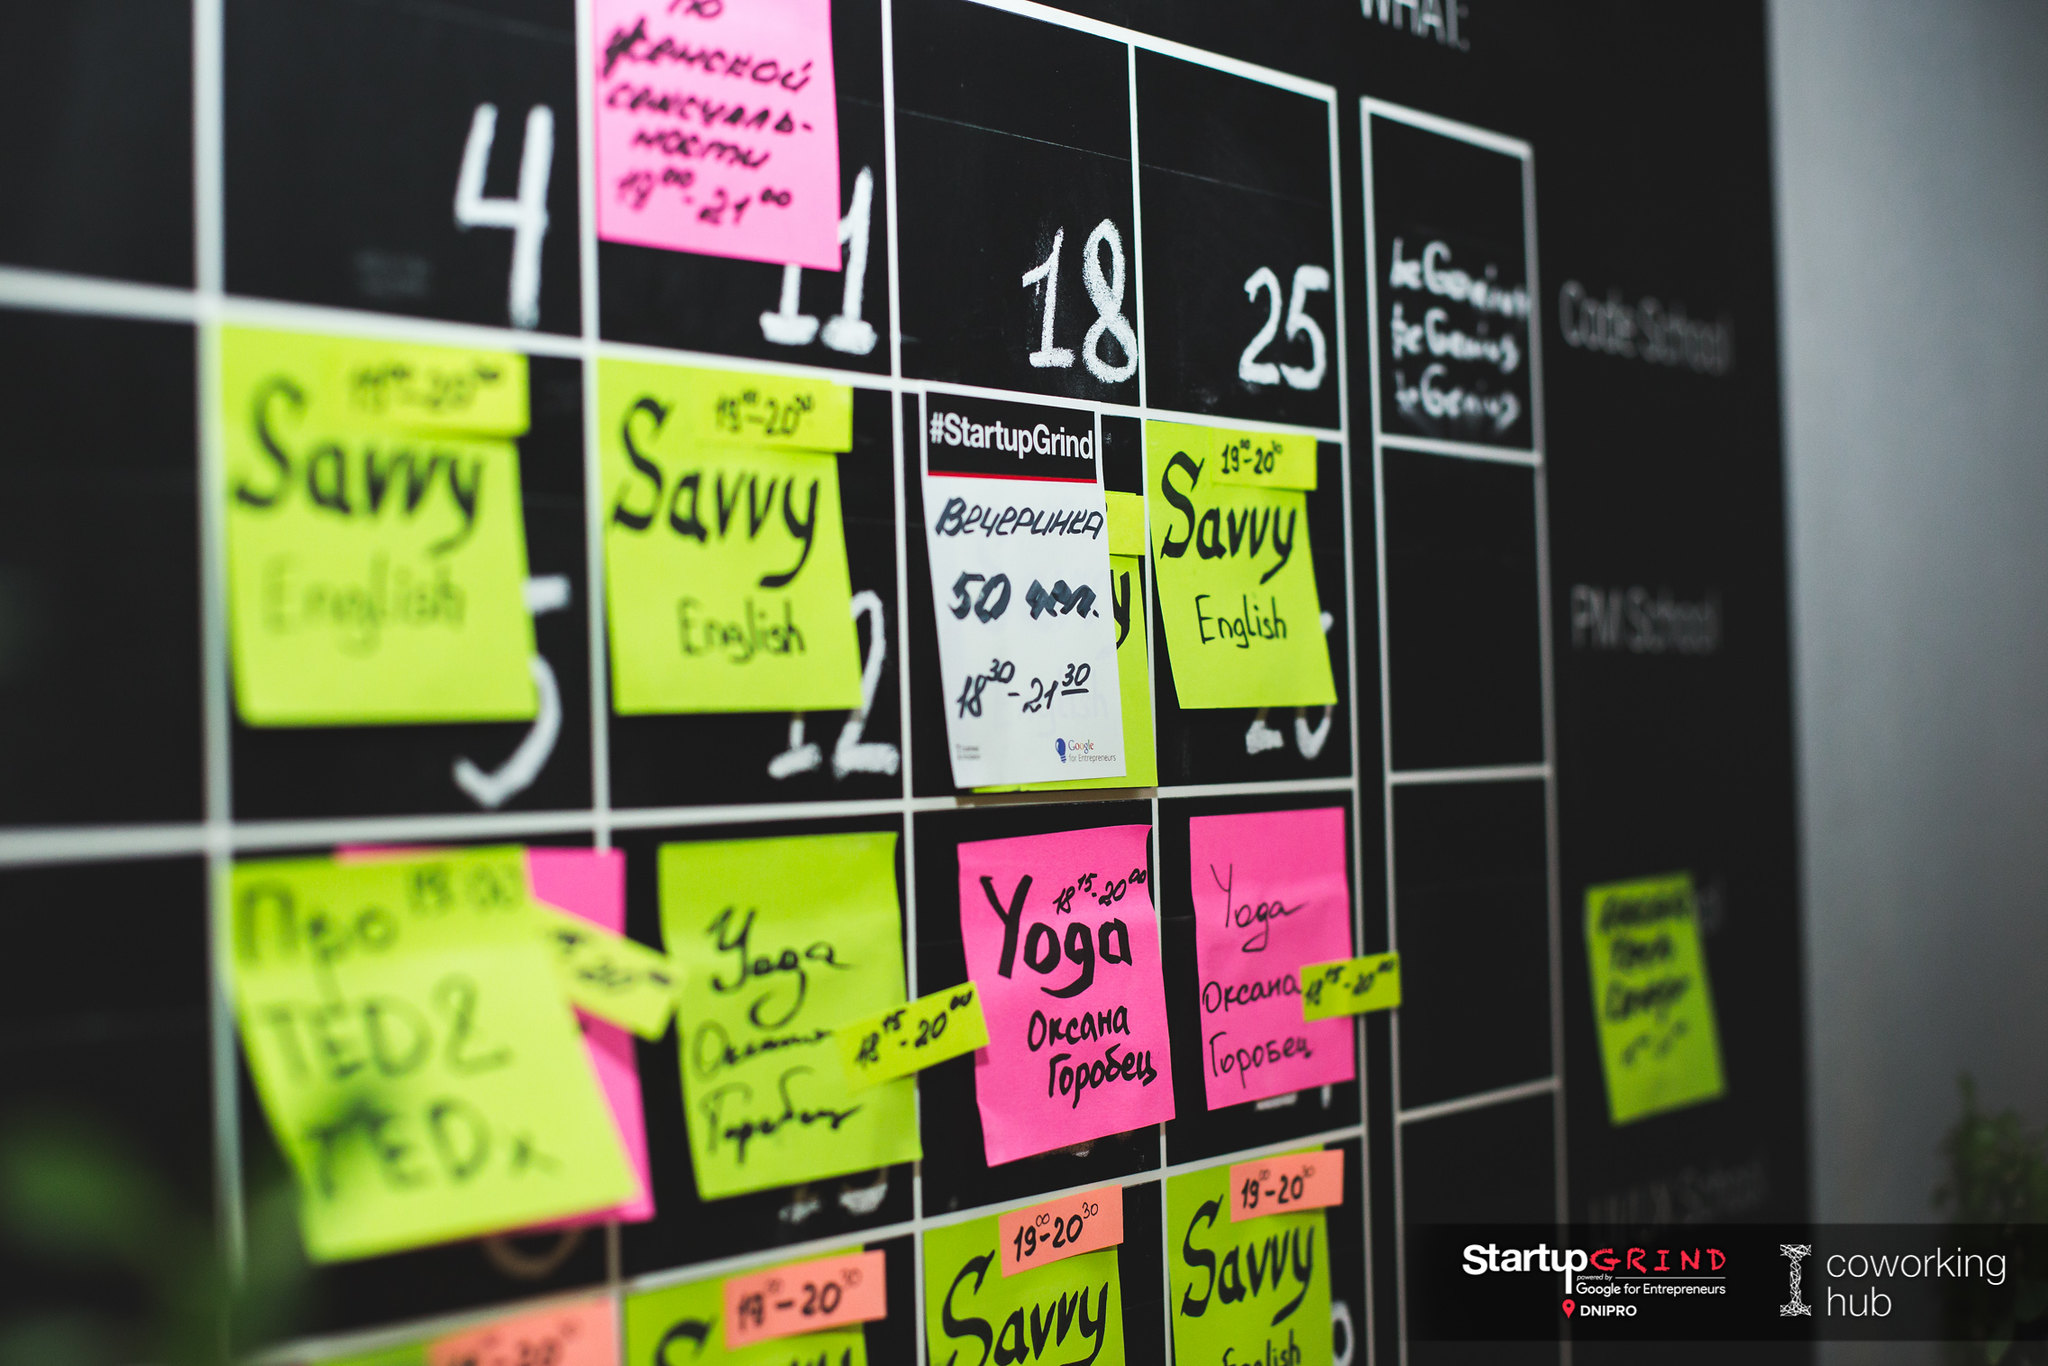 WHAT:
по
женской
сексуаль-
ности
18⁰⁰-21⁰⁰
4
11
18
25
be Genius
be Genius
be Genius
Code School
19⁰⁰-20³⁰
Savvy
English
5
19⁰⁰-20³⁰
Savvy
English
12
#StartupGrind
Вечеринка
50 чел.
18³⁰-21³⁰
Google
for Entrepreneurs
y
19⁰⁰-20³⁰
Savvy
English
26
PM School
Про 19:00
TED2
TEDx
Yoga
Оксана
Горобец
18¹⁵-20⁰⁰
Yoga
18¹⁵-20⁰⁰
Оксана
Горобец
Yoga
Оксана
Горобец
18¹⁵-20⁰⁰
19⁰⁰-20³⁰
Savvy
19⁰⁰-20³⁰
Savvy
19⁰⁰-20³⁰
Savvy
English
StartupGRIND
powered by
Google for Entrepreneurs
DNIPRO
coworking
hub